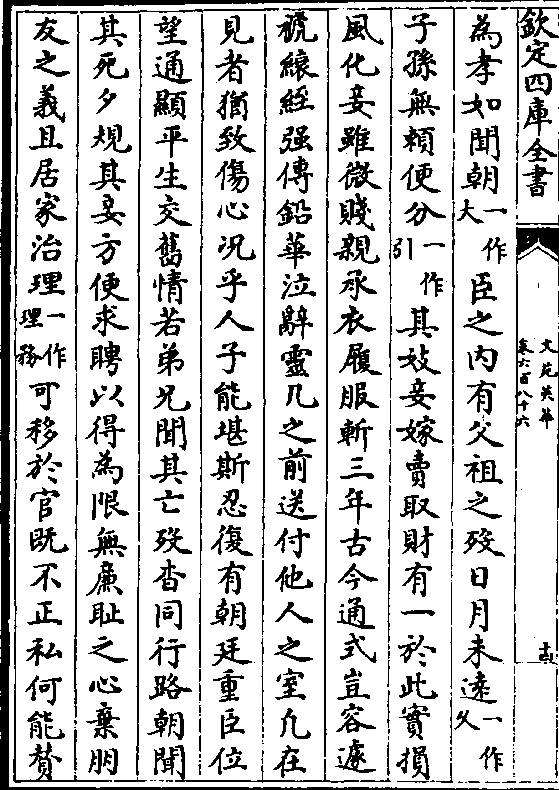 欽定四庫全書
文苑英華
卷六百八十六
為孝如聞朝一作大臣之內有父祖之歿日月未遠一作久
子孫無頼便分一作引其妓妾嫁賣取財有一於此實損
風化妾雖微賤親承衣履服斬三年古今通式豈容遽
褫縗絰强傅鉛華泣辭靈几之前送付他人之室凡在
見者猶致傷心况乎人子能堪斯忍復有朝廷重臣位
望通顯平生交舊情若弟兄聞其亡歿杳同行路朝聞
其死夕規其妾方便求聘以得為限無廉耻之心棄朋
友之義且居家治理一作理務可移於官既不正私何能賛